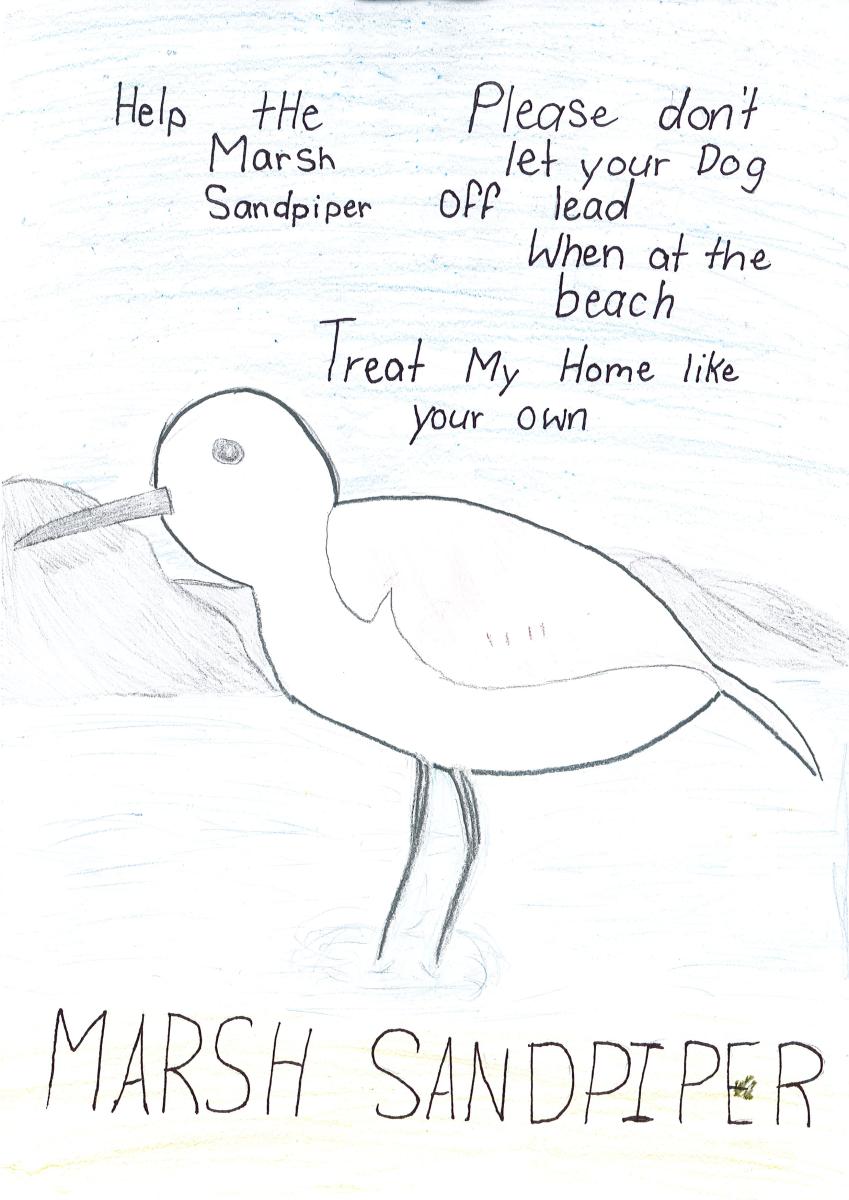 Help tHe
Marsh
Sandpiper
Please don't
let your Dog
off lead
When at the
beach
Treat My Home like
your own
MARSH SANDPIPER